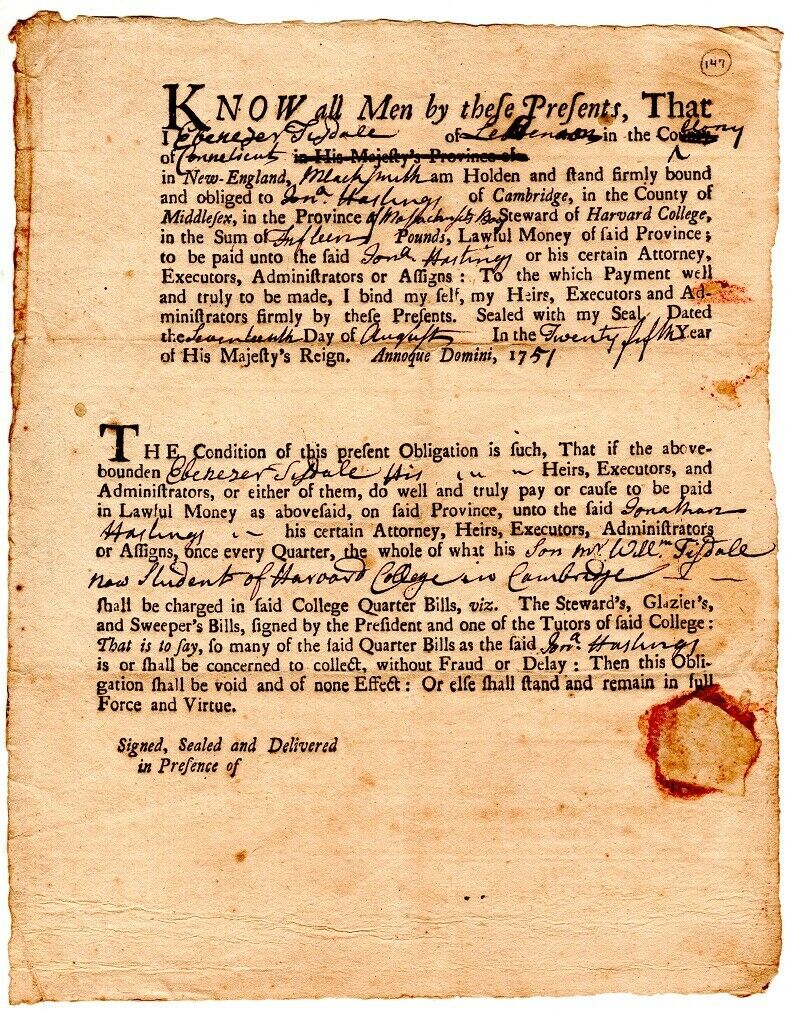 147
KNOW all Men by theſe Preſents, That
I Ebenezer Tisdale of Lebbenaon in the Colony
of Connecticut in His Majeſty's Province of
in New-England, Blacksmith am Holden and ſtand firmly bound
and obliged to Jonᵃ Hastings of Cambridge, in the County of
Middleſex, in the Province of Maſsachusetts Bay Steward of Harvard College,
in the Sum of Fifteen Pounds, Lawful Money of ſaid Province;
to be paid unto the ſaid Jonᵃ Hastings or his certain Attorney,
Executors, Adminiſtrators or Aſſigns: To the which Payment well
and truly to be made, I bind my ſelf, my Heirs, Executors and Ad-
miniſtrators firmly by theſe Preſents. Sealed with my Seal. Dated
the Seventeenth Day of August In the Twenty fifth Year
of His Majeſty's Reign. Annoque Domini, 1751
THE Condition of this preſent Obligation is ſuch, That if the above-
bounden Ebenezer Tisdale His Heirs, Executors, and
Adminiſtrators, or either of them, do well and truly pay or cauſe to be paid
in Lawful Money as aboveſaid, on ſaid Province, unto the ſaid Jonathan
Hastings his certain Attorney, Heirs, Executors, Adminiſtrators
or Aſſigns, once every Quarter, the whole of what his Son Mr. Willᵐ Tisdale
now Student of Harvard College in Cambridge
ſhall be charged in ſaid College Quarter Bills, viz. The Steward's, Glazier's,
and Sweeper's Bills, ſigned by the Preſident and one of the Tutors of ſaid College:
That is to ſay, ſo many of the ſaid Quarter Bills as the ſaid Jonᵃ Hastings
is or ſhall be concerned to collect, without Fraud or Delay: Then this Obli-
gation ſhall be void and of none Effect: Or elſe ſhall ſtand and remain in full
Force and Virtue.
Signed, Sealed and Delivered
in Preſence of